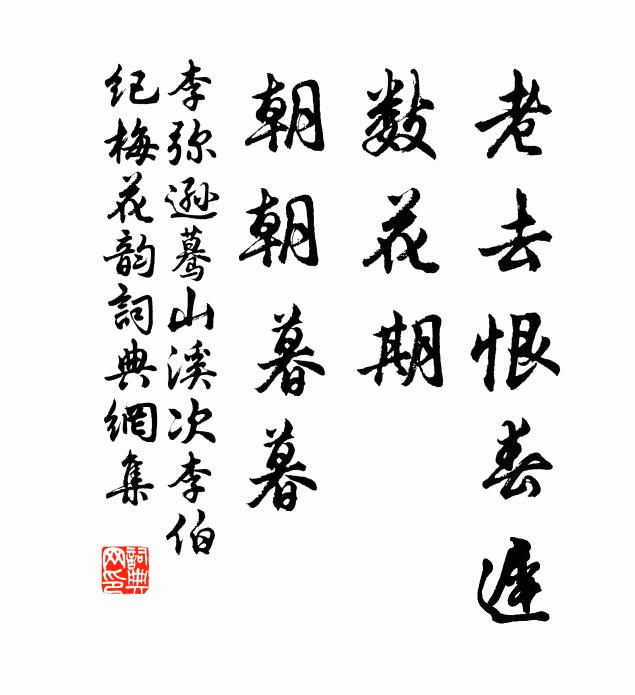 老去恨春遲
數花期
朝朝暮暮
李弥遜驀山溪次李伯
紀梅花韵詞典網集
詞典
网印